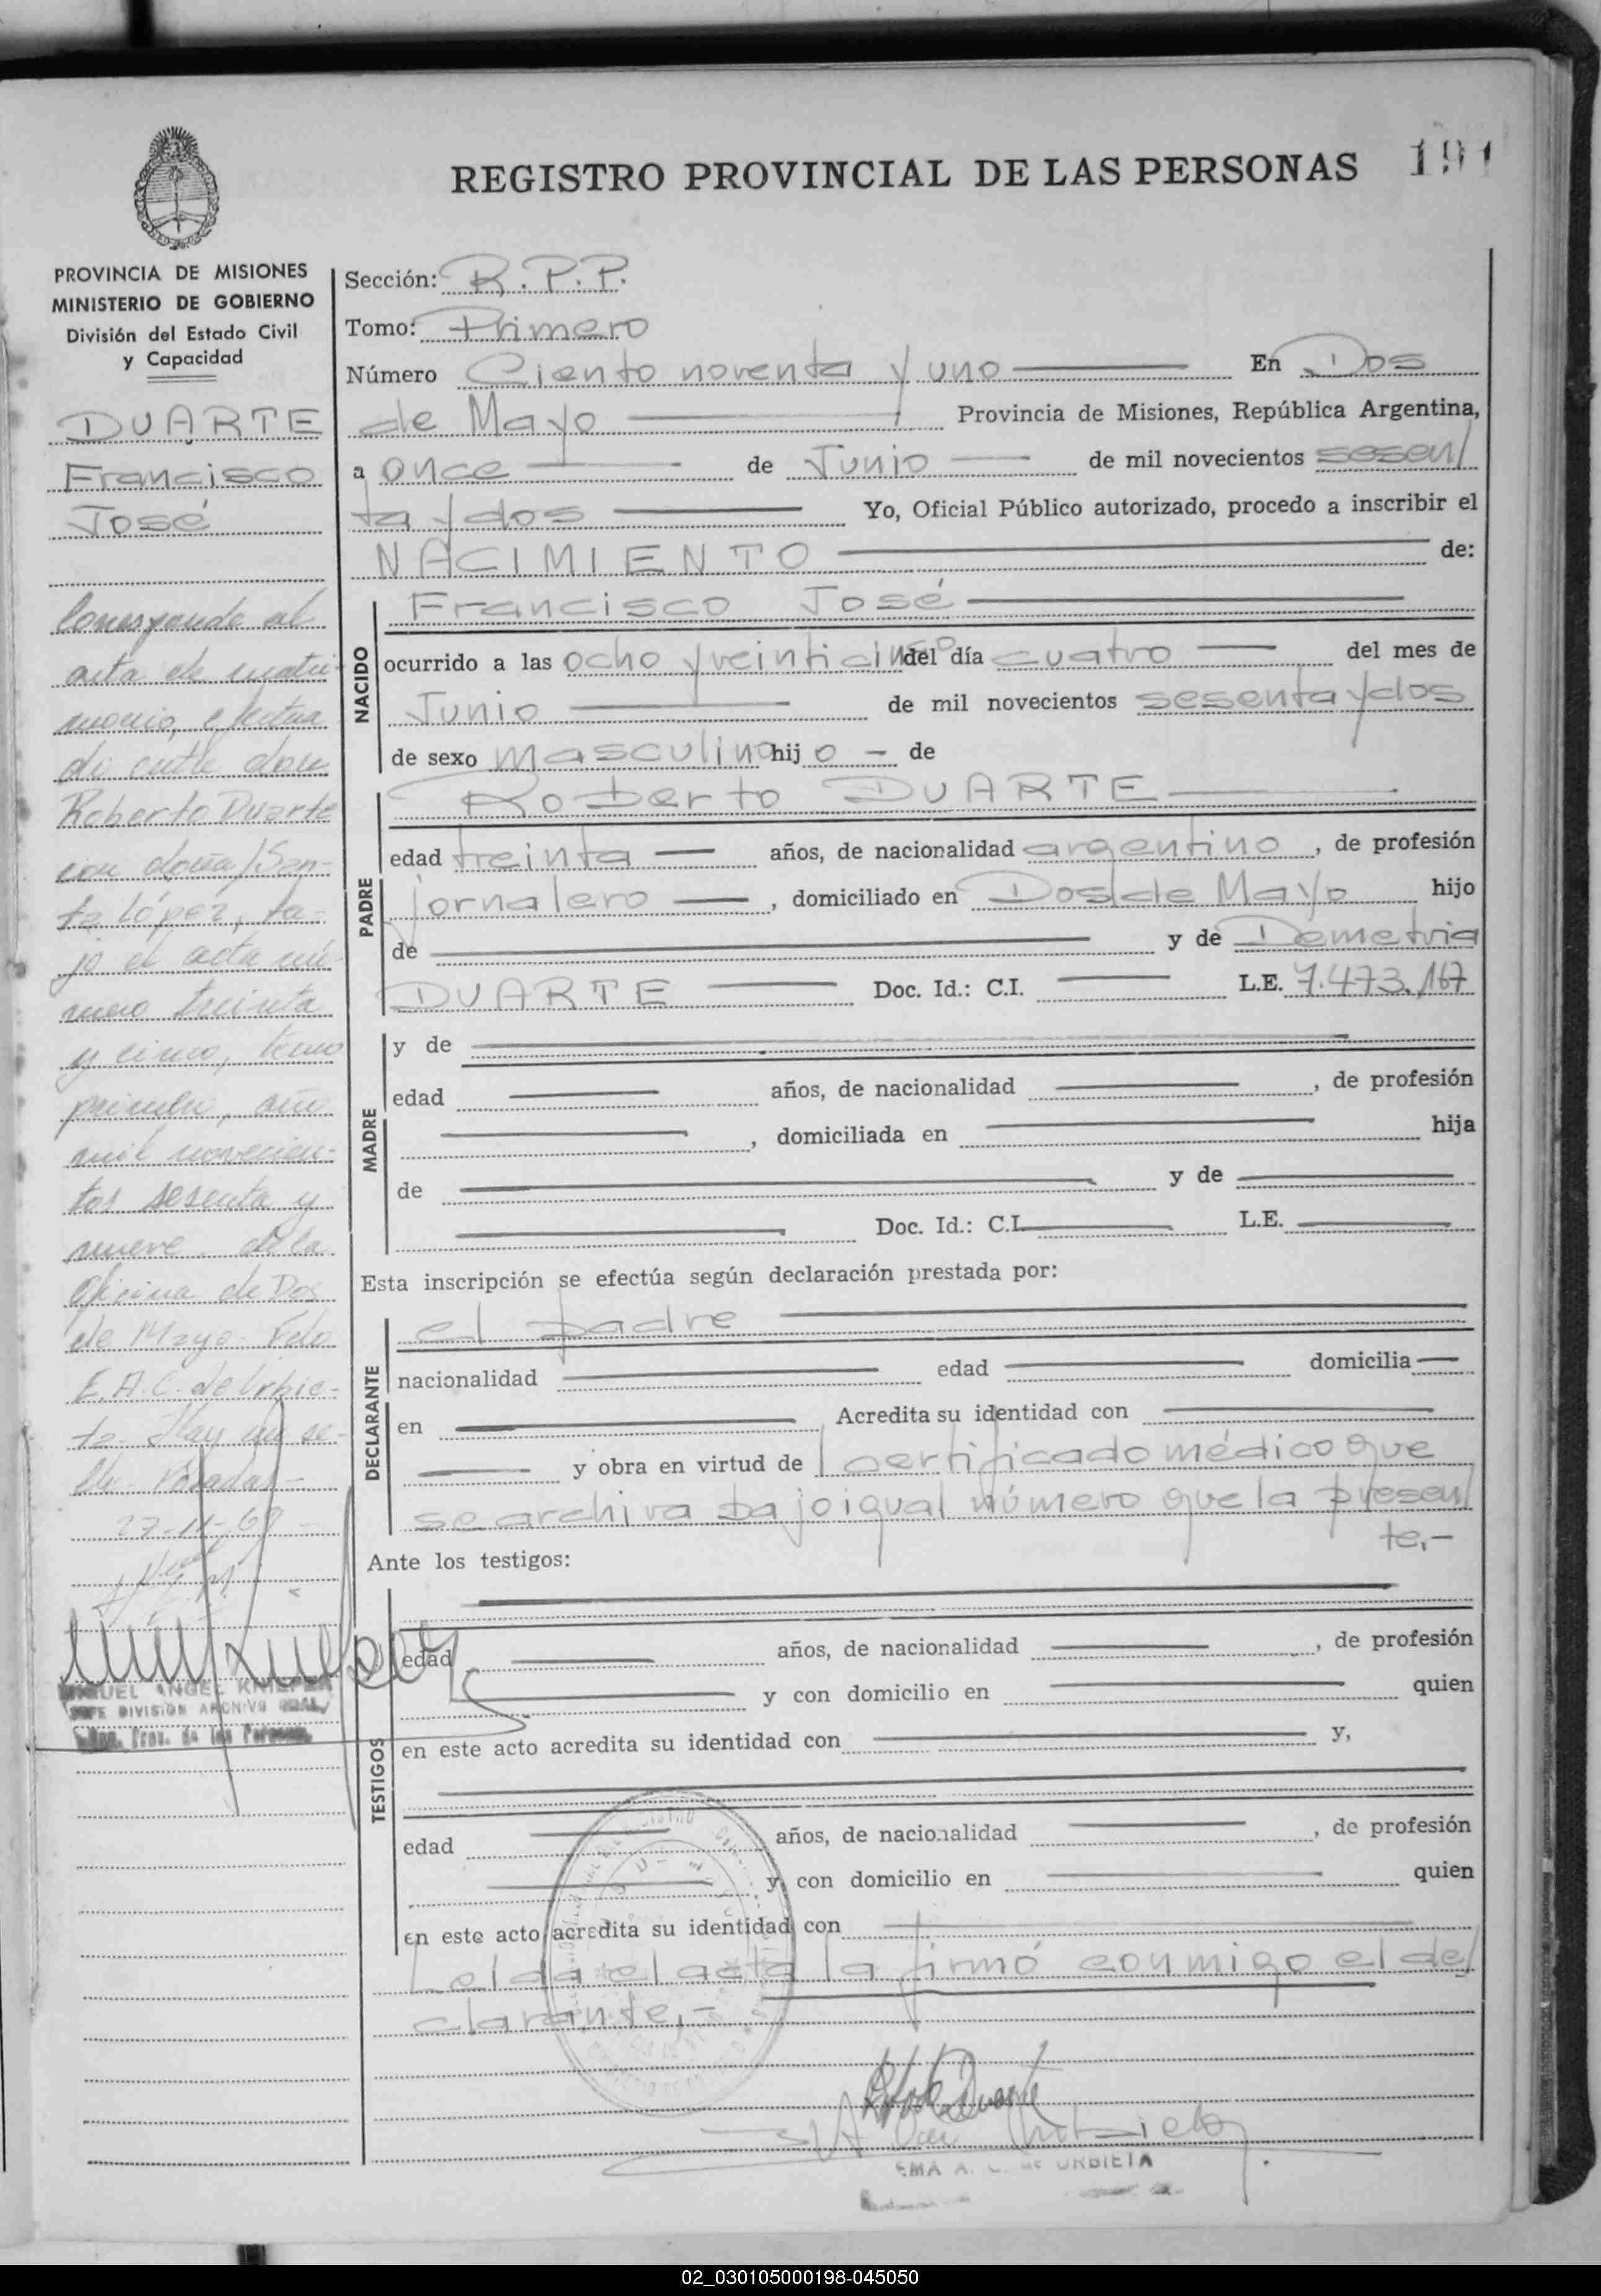 REGISTRO PROVINCIAL DE LAS PERSONAS 191
PROVINCIA DE MISIONES
MINISTERIO DE GOBIERNO
División del Estado Civil
y Capacidad
DUARTE
Francisco
José
Corresponde al
acta de matri-
monio, efectua
do entre don
Roberto Duarte
con doña/San-
ta López, ba-
jo el acta nú-
mero treinta
y cinco, tomo
primero, año
mil novecien-
tos sesenta y
nueve de la
oficina de Dos
de Mayo. Fdo
E.A.C. de Urbie-
ta. Hay un se-
llo. Posadas-
27-11-69-
MIGUEL ANGEL
JEFE DIVISION ARCHIVO GRAL.
Reg. Prov. de las Personas
Sección: R.P.P.
Tomo: Primero
Número Ciento noventa y uno En Dos
de Mayo Provincia de Misiones, República Argentina,
a once de Junio de mil novecientos sesen/
ta y dos Yo, Oficial Público autorizado, procedo a inscribir el
NACIMIENTO de:
NACIDO
Francisco José
ocurrido a las ocho y veinticinco del día cuatro del mes de
Junio de mil novecientos sesenta y dos
de sexo masculino hijo - de
PADRE
Roberto DUARTE
edad treinta años, de nacionalidad argentino, de profesión
jornalero, domiciliado en Dos de Mayo hijo
de y de Demetria
DUARTE Doc. Id.: C.I. L.E. 7.473.167
MADRE
y de
edad años, de nacionalidad , de profesión
, domiciliada en hija
de y de
Doc. Id.: C.I. L.E.
Esta inscripción se efectúa según declaración prestada por:
DECLARANTE
el padre
nacionalidad edad domicilia
en Acredita su identidad con
y obra en virtud de certificado médico que
se archiva bajo igual número que la presen/
te,-
Ante los testigos:
TESTIGOS
edad años, de nacionalidad , de profesión
y con domicilio en quien
en este acto acredita su identidad con y,
edad años, de nacionalidad , de profesión
y con domicilio en quien
en este acto acredita su identidad con
Leída el acta la firmó conmigo el de/
clarante,-
Roberto Duarte
EMA A. C. de URBIETA
02_030105000198-045050